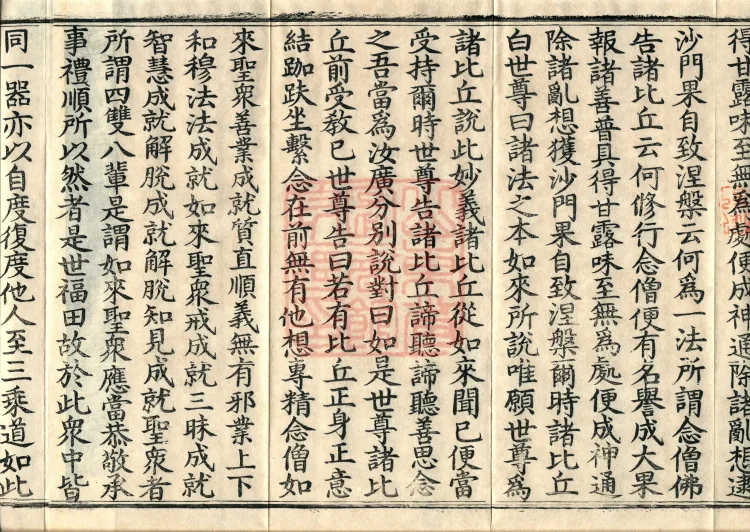 得甘露味至無為處便成神通除諸亂想逮
沙門果自致涅槃云何為一法所謂念僧佛
告諸比丘云何修行念僧便有名譽成大果
報諸善普具得甘露味至無為處便成神通
除諸亂想獲沙門果自致涅槃爾時諸比丘
白世尊曰諸法之本如來所說唯願世尊為
諸比丘說此妙義諸比丘從如來聞已便當
受持爾時世尊告諸比丘諦聽諦聽善思念
之吾當為汝廣分別說對曰如是世尊諸比
丘前受教已世尊告曰若有比丘正身正意
結跏趺坐繫念在前無有他想專精念僧如
來聖衆善業成就質直順義無有邪業上下
和穆法法成就如來聖衆戒成就三昧成就
智慧成就解脫成就解脫知見成就聖衆者
所謂四雙八輩是謂如來聖衆應當恭敬承
事禮順所以然者是世福田故於此衆中皆
同一器亦以自度復度他人至三乘道如此